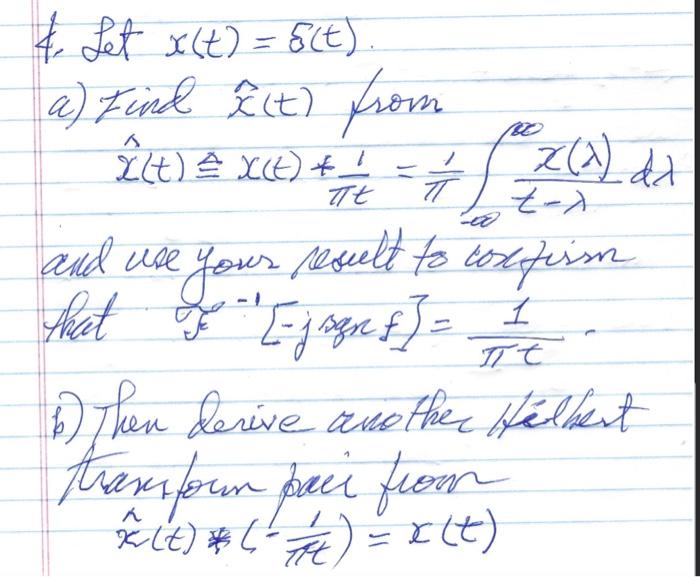 4. Let x(t) = δ(t).
a) Find x̂(t) from
x̂(t) ≜ x(t) * 1/πt = 1/π ∫_{-∞}^{∞} x(λ)/(t-λ) dλ
and use your result to confirm
that ℱ⁻¹[-j sgn f] = 1/πt.
b) Then derive another Hilbert
transform pair from
x̂(t) * (-1/πt) = x(t)